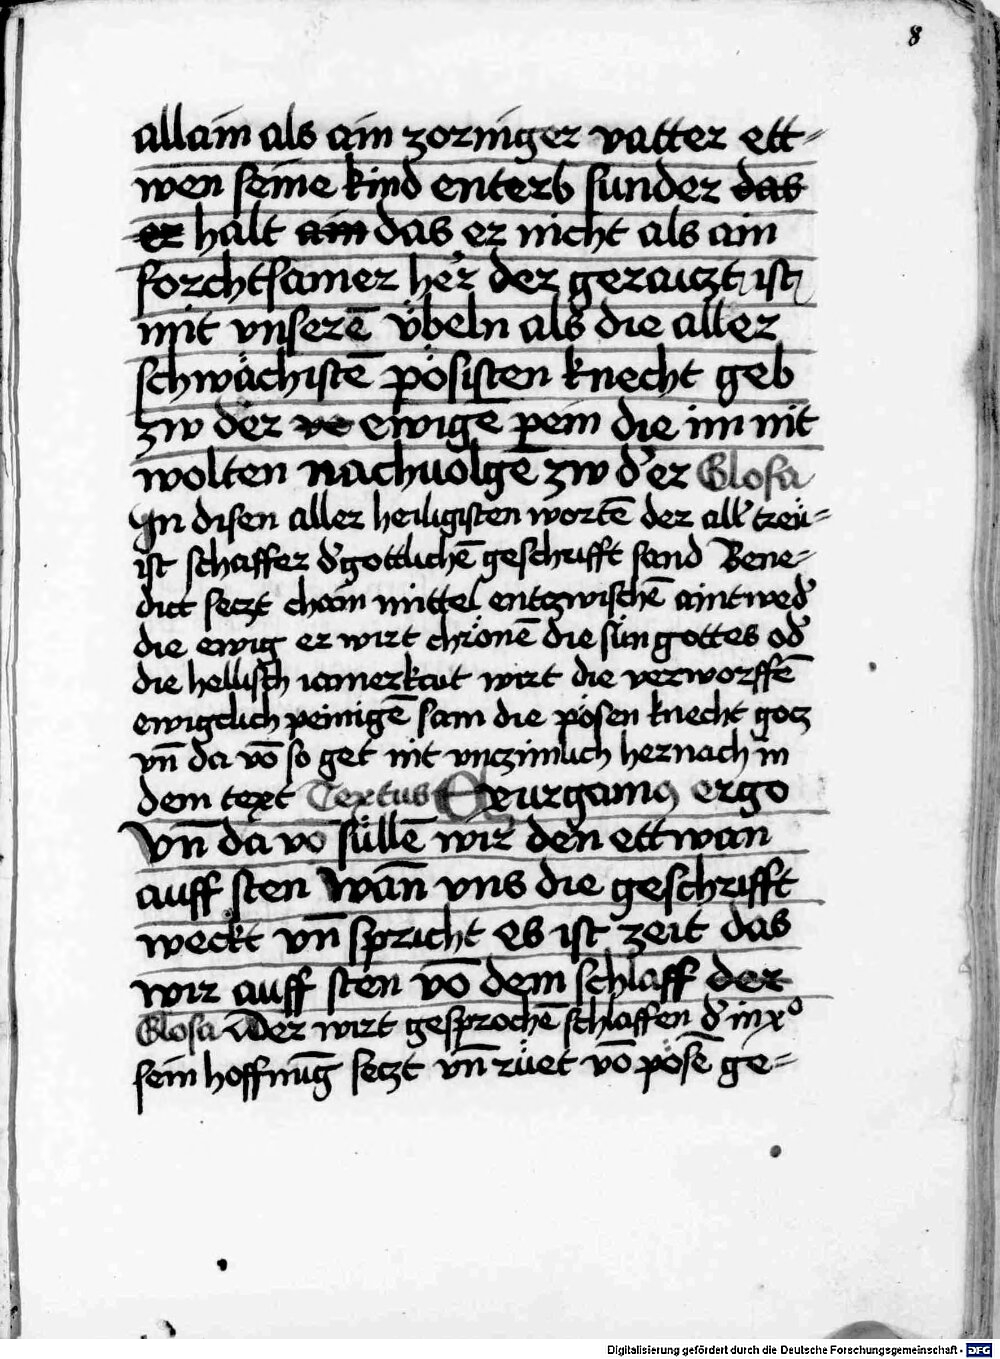 8
allain als ain zorniger vatter ett-
wen seine kind enterb sunder das
er halt ain das er nicht als ain
forchtsamer her der geraiczt ist
mit vnserē v̈beln als die aller
schwächistē pösisten knecht geb
zw der ve ewigē pein die im nit
wolten nachuolgē zw d'er Glosa
In disen aller heiligisten wortē der all' treü-
ist schaffer d' gottlichē geschrifft sand Bene-
dict seczt chain mittel entzwischē aintwed'
die ewig er wirt chrönē die sün gottes od'
die hellisch iamerkait wirt die verworffē
ewigclich peinigē sam die pösen knecht gocz
vn̄ da vō so get nit vnzimlich hernach in
dem text Textus Exurgamꝰ ergo
Vn̄ da vō süllē wir den ettwan
auff sten wān vns die geschrifft
weckt vn̄ spricht es ist zeit das
wir auff sten vō dem schlaff der
Glosa Der wirt gesprochē schlaffen d' in xº
sein hoffnūg seczt vn̄ rüet vō pösē ge-
Digitalisierung gefördert durch die Deutsche Forschungsgemeinschaft - DFG